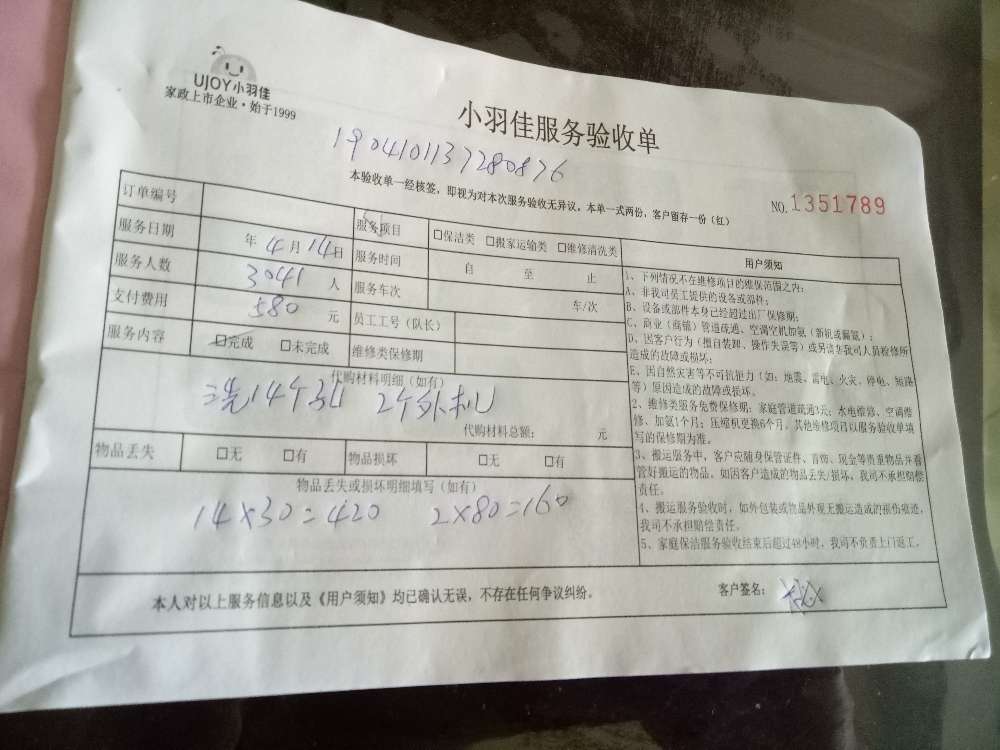 UJOY小羽佳
家政上市企业·始于1999
小羽佳服务验收单
1904101137280876
本验收单一经核签，即视为对本次服务验收无异议，本单一式两份，客户留存一份（红）
NO. 1351789
订单编号 服务项目 □保洁类 □搬家运输类 □维修清洗类
服务日期 年 4月14日 服务时间 自 至 止
服务人数 3041 人 服务车次 车/次
支付费用 580 元 员工工号（队长）
服务内容 ☑完成 □未完成 维修类保修期
代购材料明细（如有）
洗14个 2个外机
代购材料总额： 元
物品丢失 □无 □有 物品损坏 □无 □有
物品丢失或损坏明细填写（如有）
14×30=420 2×80=160
用户须知
1、下列情况不在维修项目的维保范围之内：
A、非我司员工提供的设备或部件；
B、设备或部件本身已经超过出厂保修期；
C、商业（商铺）管道疏通、空调空机加氨（新机或漏氨）；
D、因客户行为（擅自装卸、操作失误等）或另请非我司人员检修所
造成的故障或损坏；
E、因自然灾害等不可抗拒力（如：地震、雷电、火灾、停电、短路
等）原因造成的故障或损坏。
2、维修类服务免费保修期：家庭管道疏通3天；水电维修、空调维
修、加氨1个月；压缩机更换6个月。其他维修项目以服务验收单填
写的保修期为准。
3、搬运服务中，客户应随身保管证件、首饰、现金等贵重物品并看
管好搬运的物品，如因客户造成的物品丢失/损坏，我司不承担赔偿
责任。
4、搬运服务验收时，如外包装或物品外观无搬运造成的损伤痕迹，
我司不承担赔偿责任。
5、家庭保洁服务验收结束后超过48小时，我司不负责上门返工。
本人对以上服务信息以及《用户须知》均已确认无误，不存在任何争议纠纷。
客户签名：